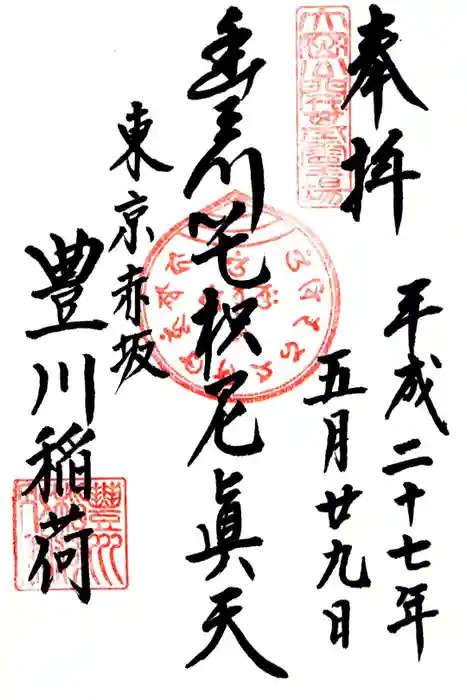 奉拝
平成二十七年
五月廿九日
豊川吒枳尼眞天
東京赤坂
豊川稲荷